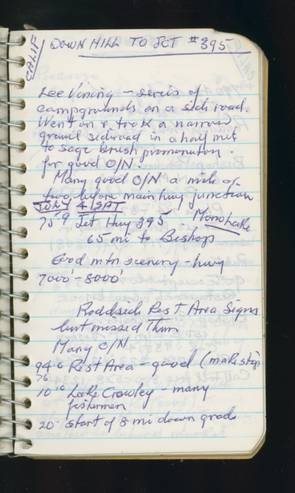 CALIF
DOWN HILL TO JCT #395
Lee Vining - series of
campgrounds on a side road.
Went on & took a narrow
gravel sideroad in a half mile
to sage brush promontory.
for good O/N.
Many good O/N a mile or
two before main hwy junction
JULY 4 SAT
75°9 Jct Hwy 395 Mono Lake
65 mi to Bishop
Good mtn scenery - hwy
7000' - 8000'
Roadside Rest Area Signs
but missed them
Many O/N
Rest Area - good (make stop
10 Lake Crowley - many
fishermen
20 start of 8 mi down grade